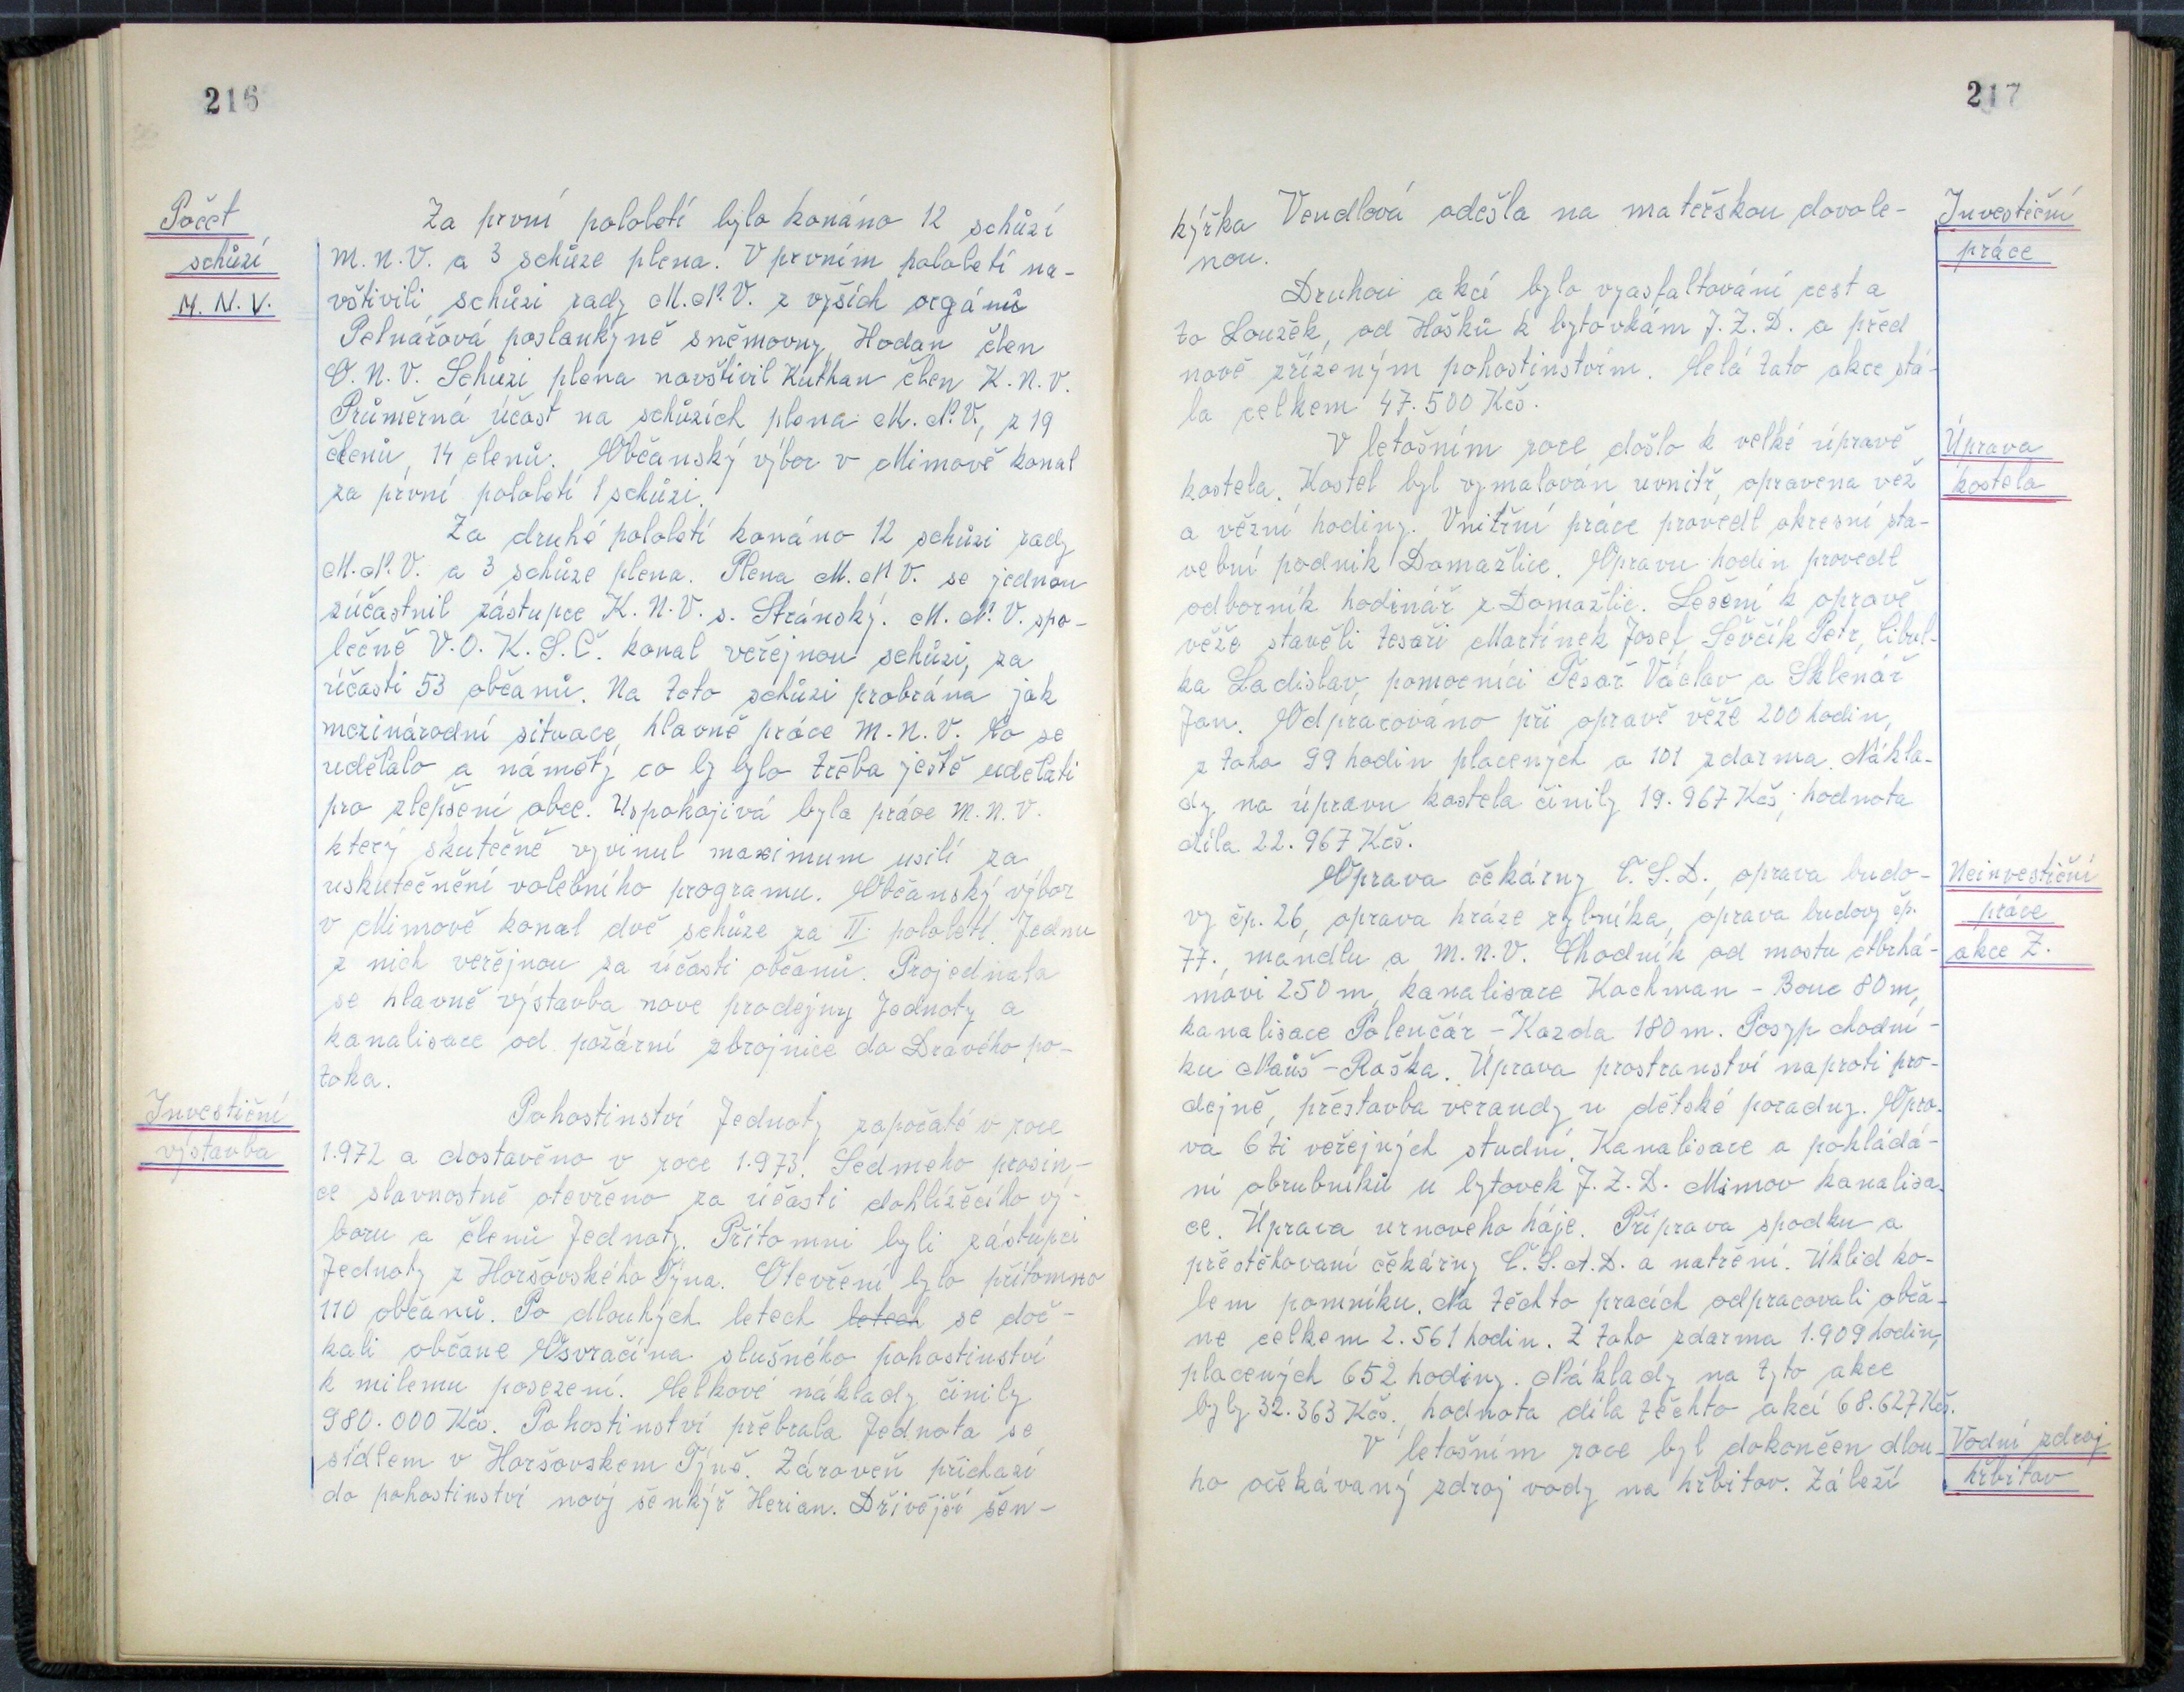 216
Počet
schůzí
M. N. V.
Za první pololetí bylo konáno 12 schůzí
M. N. V. a 3 schůze plena. V prvním pololetí na-
vštivili schůzi rady M. N. V. z vyších orgánů
Pelnářová poslankyně sněmovny, Hodan člen
O. N. V. Schůzi plena navštivil Kuthan člen K. N. V.
Průměrná účast na schůzích plena M. N. V., z 19
členů, 14 členů. Občanský výbor v Mimově konal
za první pololetí 1 schůzi.
Za druhé pololetí konáno 12 schůzi rady
M. N. V. a 3 schůze plena. Plena M. N V. se jednou
zúčastnil zástupce K. N. V. s. Stránský. M. N. V. spo-
lečně V. O. K. S. Č. konal veřejnou schůzi, za
účasti 53 občanů. Na této schůzi probrána jak
mezinárodní situace, hlavně práce M. N. V. Co se
udělalo a náměty co by bylo třeba ještě udělati
pro zlepšení obce. Uspokojivá byla práce M. N. V.
který skutečně vyvinul maximum usilí za
uskutečnění volebního programu. Občanský výbor
v Mimově konal dvě schůze za II. pololetí. Jednu
z nich veřejnou za účasti občanů. Projednala
se hlavně výstavba nove prodejny Jednoty a
kanalisace od požární zbrojnice do Dravého po-
toka.
Investiční
výstavba
Pohostinství Jednoty započaté v roce
1.972 a dostavěno v roce 1.973. Sedmeho prosin-
ce slavnostně otevřeno za účasti dohlížěcího vý-
boru a členů Jednoty. Přítomni byli zástupci
Jednoty z Horšovského Týna. Otevření bylo přítomno
110 občanů. Po dlouhých letech letech se doč-
kali občane Osvračína slušného pohostinství
k milemu posezení. Celkové náklady činily
980.000 Kčs. Pohostinství přebrala Jednota se
sídlem v Horšovskem Týně. Zároveň přichazí
do pohostinství nový šenkýř Herian. Dřivější šen-
217
kýřka Vendlová odešla na mateřskou dovole-
nou.
Investiční
práce
Druhou akcí bylo vyasfaltování cest a
to Louzek, od Hošků k bytovkám J. Z. D. a před
nově zřízeným pohostinstvím. Celá tato akce stá-
la celkem 47.500 Kčs.
Úprava
kostela
V letošním roce došlo k velké úpravě
kostela. Kostel byl vymalován uvnitř, opravena věž
a věžní hodiny. Vnitřní práce provedl okresní sta-
vební podnik Domažlice. Opravu hodin provedl
odborník hodinář z Domažlic. Lešení k opravě
věže stavěli tesaři Martínek Josef, Ševčík Petr, Cibul-
ka Ladislav, pomocníci Tesař Václav a Sklenář
Jan. Odpracováno při opravě věže 200 hodin,
z toho 99 hodin placených a 101 zdarma. Nákla-
dy na úpravu kostela činily 19.967 Kčs, hodnota
díla 22.967 Kčs.
Neinvestiční
práce
akce Z.
Oprava čekárny Č. S. D., oprava budo-
vy čp. 26, oprava hráze rybníka, oprava budovy čp.
77., mandlu a M. N. V. Chodník od mostu Abrhá-
movi 250 m, kanalisace Kochman - Bouc 80 m,
kanalisace Polenčár - Kazda 180 m. Posyp chodní-
ku Nauš - Raška. Úprava prostranství naproti pro-
dejně, přestavba verandy u dětské poradny. Opra-
va 6 ti veřejných studní. Kanalisace a pohládá-
ní obrubníků u bytovek J. Z. D. Mimov kanalisa-
ce. Úprava urnového háje. Příprava spodku a
přestěhovaní čekárny Č. S. A. D. a natření. Úklid ko-
lem pomníku. Na těchto pracích odpracovali obča-
ne celkem 2.561 hodin. Z toho zdarma 1.909 hodin,
placených 652 hodiny. Náklady na tyto akce
byly 32.363 Kčs., hodnota díla těchto akcí 68.627 Kčs.
Vodní zdroj
hřbitov
V letošním roce byl dokončen dlou-
ho očekávaný zdroj vody na hřbitov. Záleží